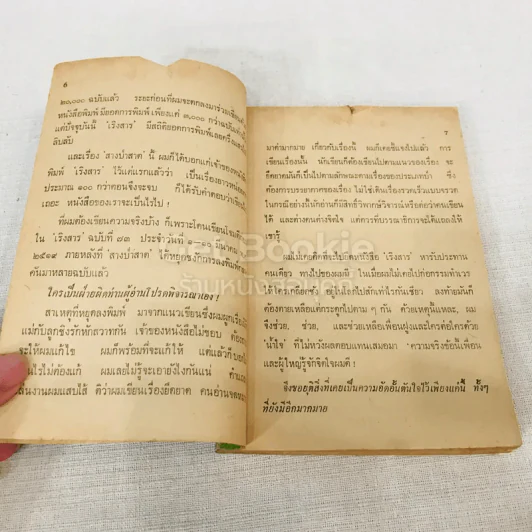 ๖
๒๐,๐๐๐ ฉบับแล้ว ระยะก่อนที่ผมจะตกลงมาร่วมเขียนกับ
หนังสือพิมพ์ มียอดการพิมพ์ เพียงแค่ ๓,๐๐๐ กว่าฉบับเท่านั้น
แต่ปัจจุบันนี้ 'เริงสาร' มีสถิติยอดการพิมพ์เลยครึ่ง
ลิบลับ
และเรื่อง 'ลางป่าสาด' นี้ ผมก็ได้บอกแก่เจ้าของหนังสือ
พิมพ์ 'เริงสาร' ไว้แต่แรกแล้วว่า เป็นเรื่องยาวหน่อย
ประมาณ ๑๐๐ กว่าตอนจึงจะจบ ก็ได้รับคำตอบว่าเขียน
เถอะ หนังสือของเราจะเป็นไรไป !
ที่ผมต้องเขียนความจริงบ้าง ก็เพราะโดนเขียนโจมตี
ใน 'เริงสาร' ฉบับที่ ๗๓ ประจำวันที่ มีนาคม
๒๕๐๔ ภายหลังที่ 'ลางป่าสาด' ได้หยุดชงักการลงพิมพ์
คั่นมาหลายฉบับแล้ว
ใครเป็นฝ่ายผิดท่านผู้อ่านโปรดพิจารณาเอง !
สาเหตุที่หยุดลงพิมพ์ มาจากแนวเขียนซึ่งผมผูกเรื่องให้
แม่กับลูกชิงรักหักสวาทกัน เจ้าของหนังสือไม่ชอบ ต้องการ
จะให้ผมแก้ไข ผมก็พร้อมที่จะแก้ให้ แต่แล้วก็บอก
ไรไม่ต้องแก้ ผมเลยไม่รู้จะเอายังไงกันแน่
สนงานผมแสบไส้ ติว่าผมเขียนเรื่องยืดยาด คนอ่าน
๗
มาด่ามากมาย เกี่ยวกับเรื่องนี้ ผมก็เคยชี้แจงไปแล้ว การ
เขียนเรื่องนั้น นักเขียนก็ต้องเขียนไปตามแนวของเรื่อง จะ
ยืดยาดมันก็เป็นไปตามลักษณะตามเรื่องของประเภทป่า ซึ่ง
ต้องการบรรยากาศของเรื่อง ไม่ใช่เดินเรื่องรวดเร็วแบบจรวด
ในกรณีอย่างนี้นักอ่านก็มีสิทธิวิพากษ์วิจารณ์หรือด่าว่าคนเขียน
ได้ และต่างคนต่างขัดใจ แต่ควรที่บรรณาธิการจะได้แถลงให้
เขารู้
ผมไม่เคยคิดที่จะไปขอหนังสือ 'เริงสาร' หารับประทาน
คนเดียว ทางไปของผมมี ในเมื่อผมไม่เคยไปก่อกรรมทำเวร
ให้ใครเกลียดชัง อยู่ในโลกไปสักเท่าไรกันเชียว ลงท้ายมันก็
ต้องตายเหลือแต่กระดูกไปตาม ๆ กัน ด้วยเหตุนี้แหละ, ผม
จึงช่วย, ช่วย, และช่วยเหลือเพื่อนฝูงและใครต่อใครด้วย
'น้ำใจ' ที่ไม่หวังผลตอบแทนเสมอมา ความจริงข้อนี้เพื่อน
และผู้ใหญ่รู้จักจิตใจผมดี !
จึงขอยุติสิ่งที่เคยเป็นความอัดอั้นตันใจไว้เพียงแค่นี้ ทั้งๆ
ที่ยังมีอีกมากมาย
Get Bookie
ร้านหนังสือ